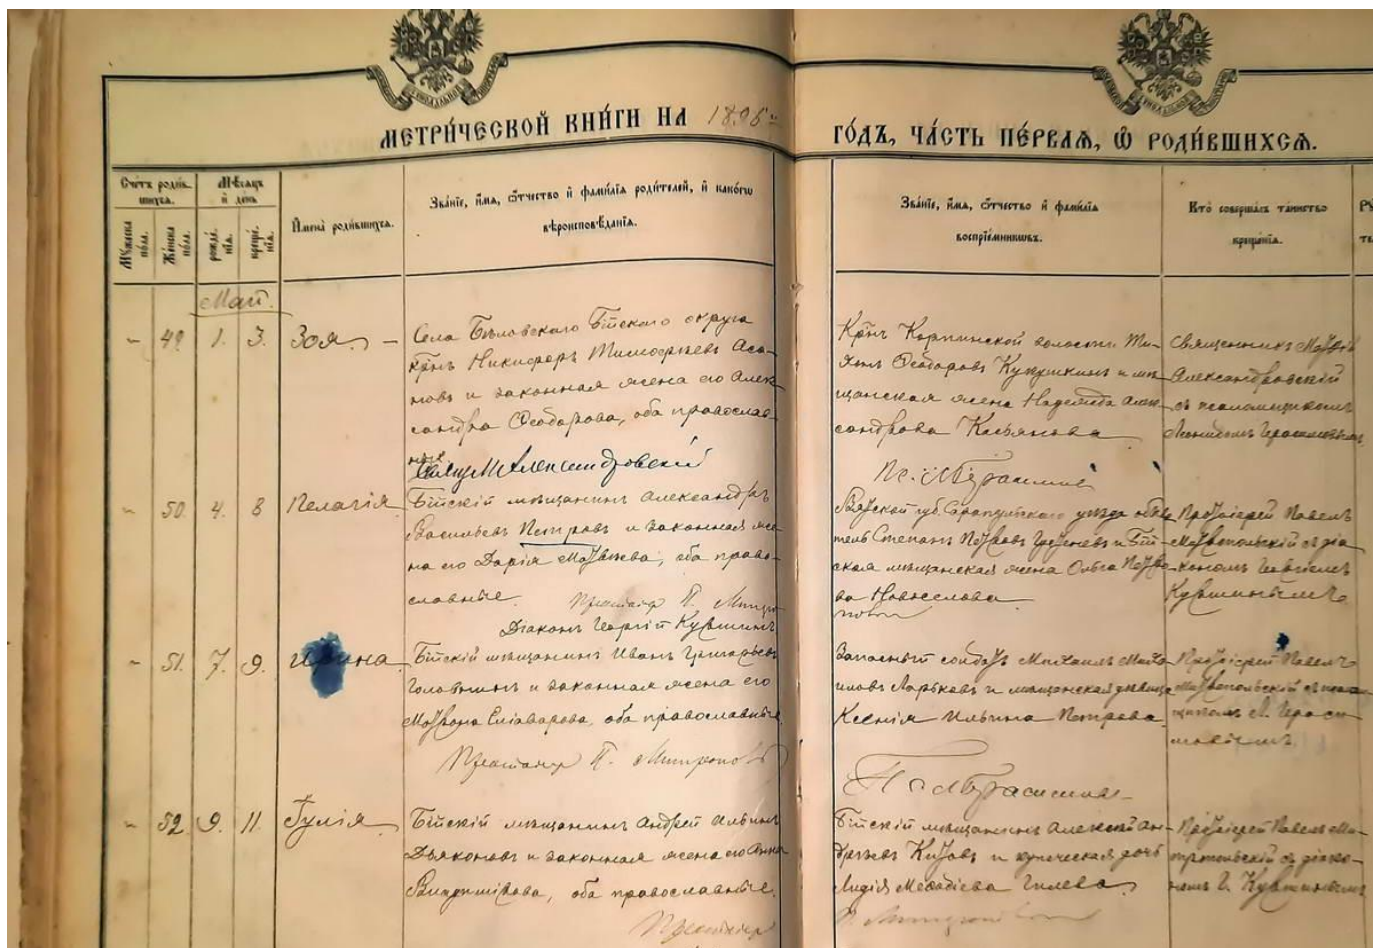 МЕТРИ́ЧЕСКОЙ КНИ́ГИ НА 1895 й
ГО́ДЪ, ЧА́СТЬ ПЕ́РВАЯ, Ѽ РОДИ́ВШИХСЯ.
Сче́тъ роди́вшихся.
Мꙋ́жеска по́ла.
Же́нска по́ла.
Мѣ́сяцъ и҆ де́нь
рожде́нїя.
креще́нїя.
И҆мена̀ роди́вшихся.
Зва́нїе, и҆́мя, ѻ҆́тчество и҆ фами́лїя роди́телей, и҆ како́гѡ
вѣроисповѣ́данїя.
Зва́нїе, и҆́мя, ѻ҆́тчество и҆ фами́лїя
воспрїе́мниковъ.
Кто̀ соверша́лъ та́инство
креще́нїя.
Май.
49. 1. 3. Зоя. –
Села Бѣловскаго Бійскаго округа
крнъ Никифоръ Тимофѣевъ
и законная жена его Алек-
сандра Ѳеодорова, оба православ-
ные
Свящ М Александровскій
Крнъ волости Ти-
Ѳеодоровъ Кукушкинъ и мѣ-
щанская жена Надежда Алек-
сандрова Касьянова
Священникъ
Александровскій
съ псаломщикомъ
50. 4. 8 Пелагія.
Бійскій мѣщанинъ Александръ
Васильевъ Петровъ и законная же-
на его Дарія Матвѣева, оба право-
славные.
Діаконъ Георгій Кувшинъ
Вятской губ. Сарапульскаго уѣзда
Степанъ Петровъ и Бій-
ская мѣщанская жена Ольга Петро-
ва Новоселова
Протоіерей Павелъ
Митропольскій съ діа-
кономъ Георгіемъ
Кувшинымъ
51. 7. 9. Ирина
Бійскій мѣщанинъ Иванъ Григорьевъ
Головнинъ и законная жена его
оба православные
Запасный солдатъ Михаилъ Миха-
иловъ Ларьковъ и мѣщанская дѣвица
Ксенія Ильина Петрова.
Протоіерей Павелъ
Митропольскій съ псалом-
щикомъ
52. 9. 11. Іулія
Бійскій мѣщанинъ Андрей Ильинъ
Дьяконовъ и законная жена его Анна
Владимірова, оба православные.
Бійскій мѣщанинъ Алексѣй Ан-
дреевъ и купеческая дочь
Лидія Меѳодіева Гилева
Протоіерей Павелъ Ми-
тропольскій съ діако-
номъ Г. Кувшинымъ